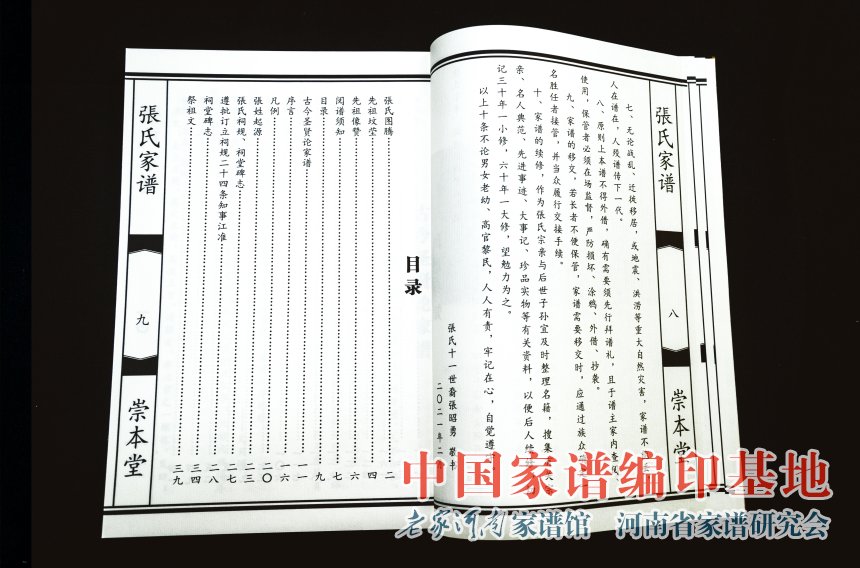 張氏家谱
八
崇本堂
七、无论战乱、迁徙移居，或地震、洪涝等重大自然灾害，家谱不
人在谱在，人殁谱传下一代。
八、原则上本谱不得外借，确有需要须先行拜谱礼，且于谱主家内查
使用，保管者必须在场监督，严防损坏、涂鸦、外借、抄袭。
九、家谱的移交，若长者不便保管，家谱需要移交时，应通过族众
名胜任者接管，并当众履行交接手续。
十、家谱的续修，作为張氏宗亲与后世子孙宜及时整理名籍，搜集
亲、名人典范、先进事迹、大事记、珍品实物等有关资料，以便后人续
记三十年一小修，六十年一大修，望勉力为之。
以上十条不论男女老幼、高官黎民，人人有责，牢记在心，自觉遵
張氏十一世裔張昭勇
二〇二一年二
目录
張氏图腾 二
先祖坟茔 四
先祖像赞 六
阅谱须知 七
目录 九
古今圣贤论家谱 一一
序言 一六
凡例 二〇
張姓起源 二三
張氏祠规、祠堂碑志 二七
遵批订立祠规二十四条知事江准 二八
祠堂碑志 三四
祭祖文 三九
張氏家谱
九
崇本堂
中国家谱编印基地
老家河南家谱馆 河南省家谱研究会